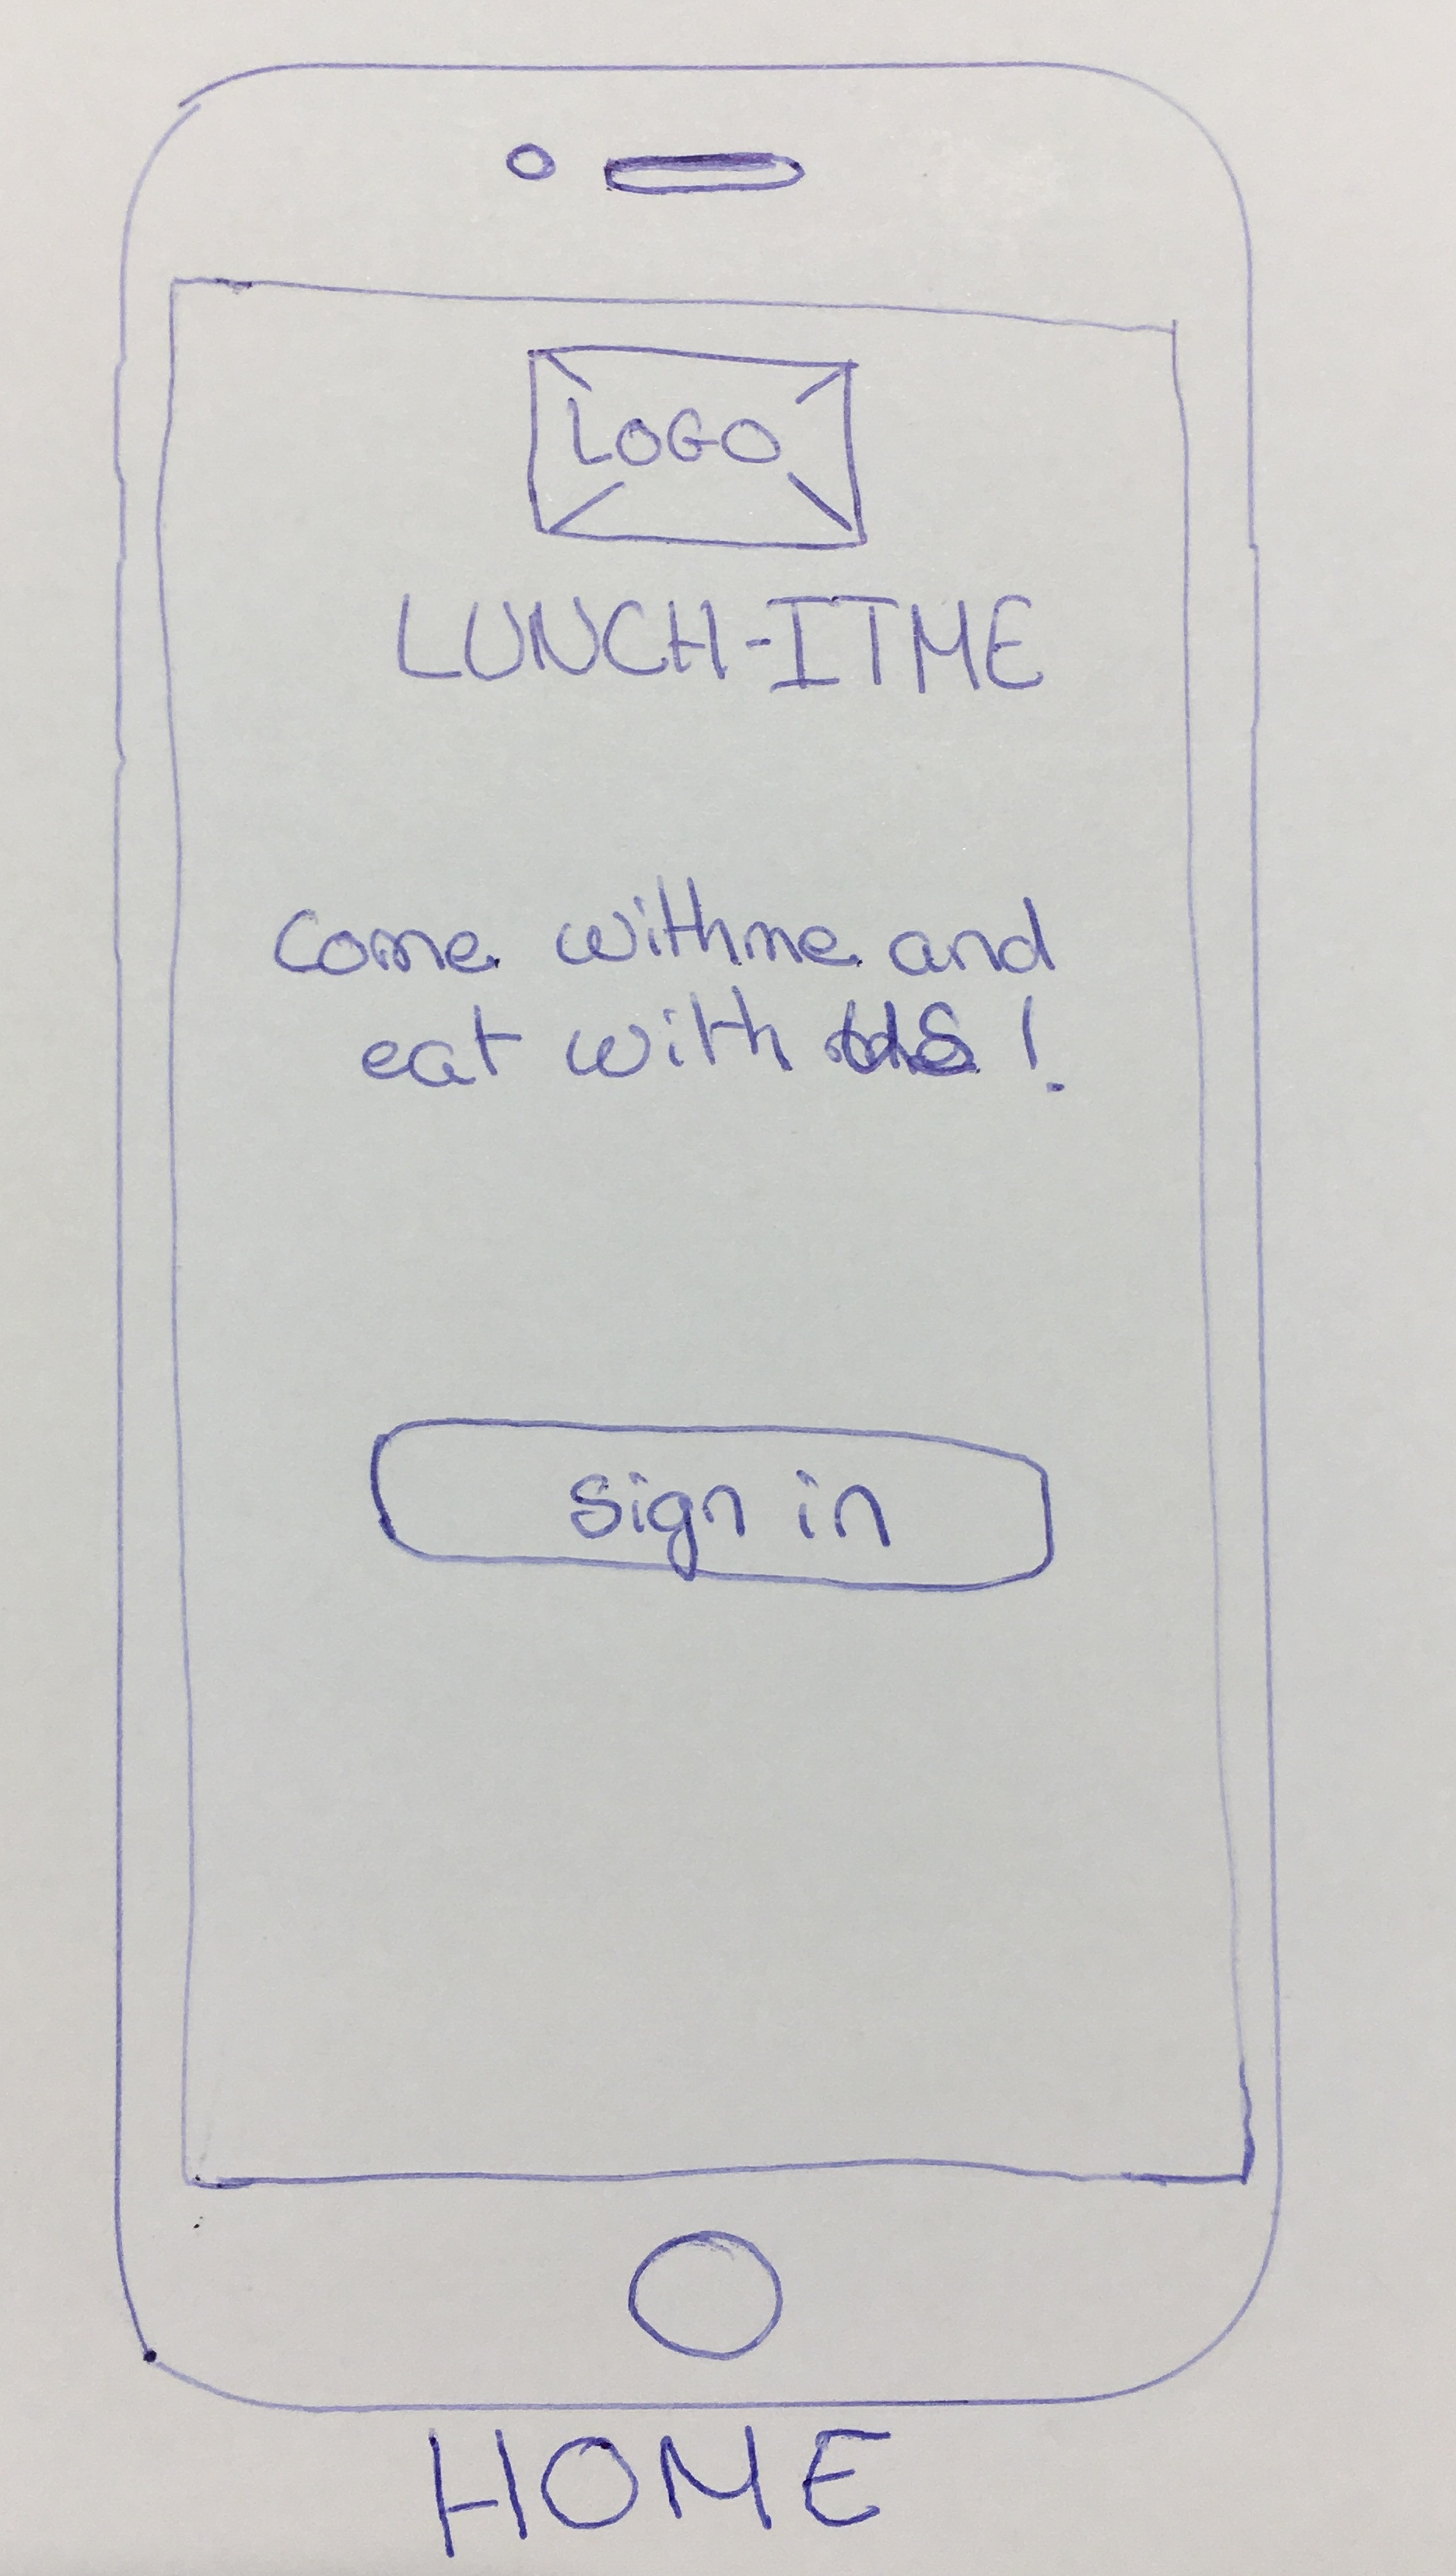 LOGO
LUNCH-ITME
Come withme and
eat with us!
sign in
HOME